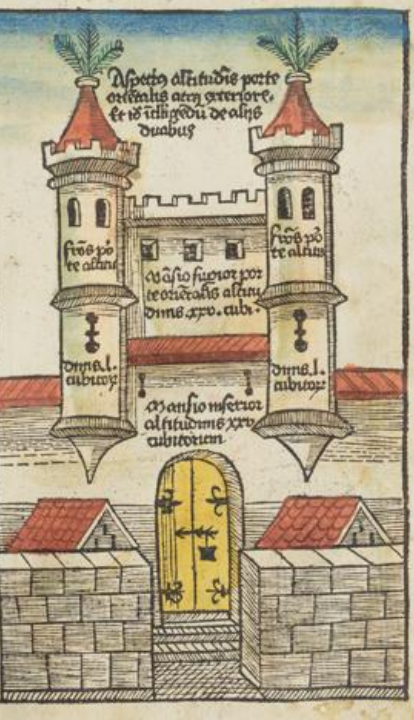 Aspectus altitudis porte
orientalis atrij exteriore.
Et id itelligedū de alijs
duabus
frōs por
te altitu
dinis. l.
cubitorꝝ
Māsio superior por
te oriētalis altitu
dinis .xxv. cubi.
frōs por
te altitu
dinis. l.
cubitorꝝ
Mansio inferior
altitudinis xxv
cubitorum